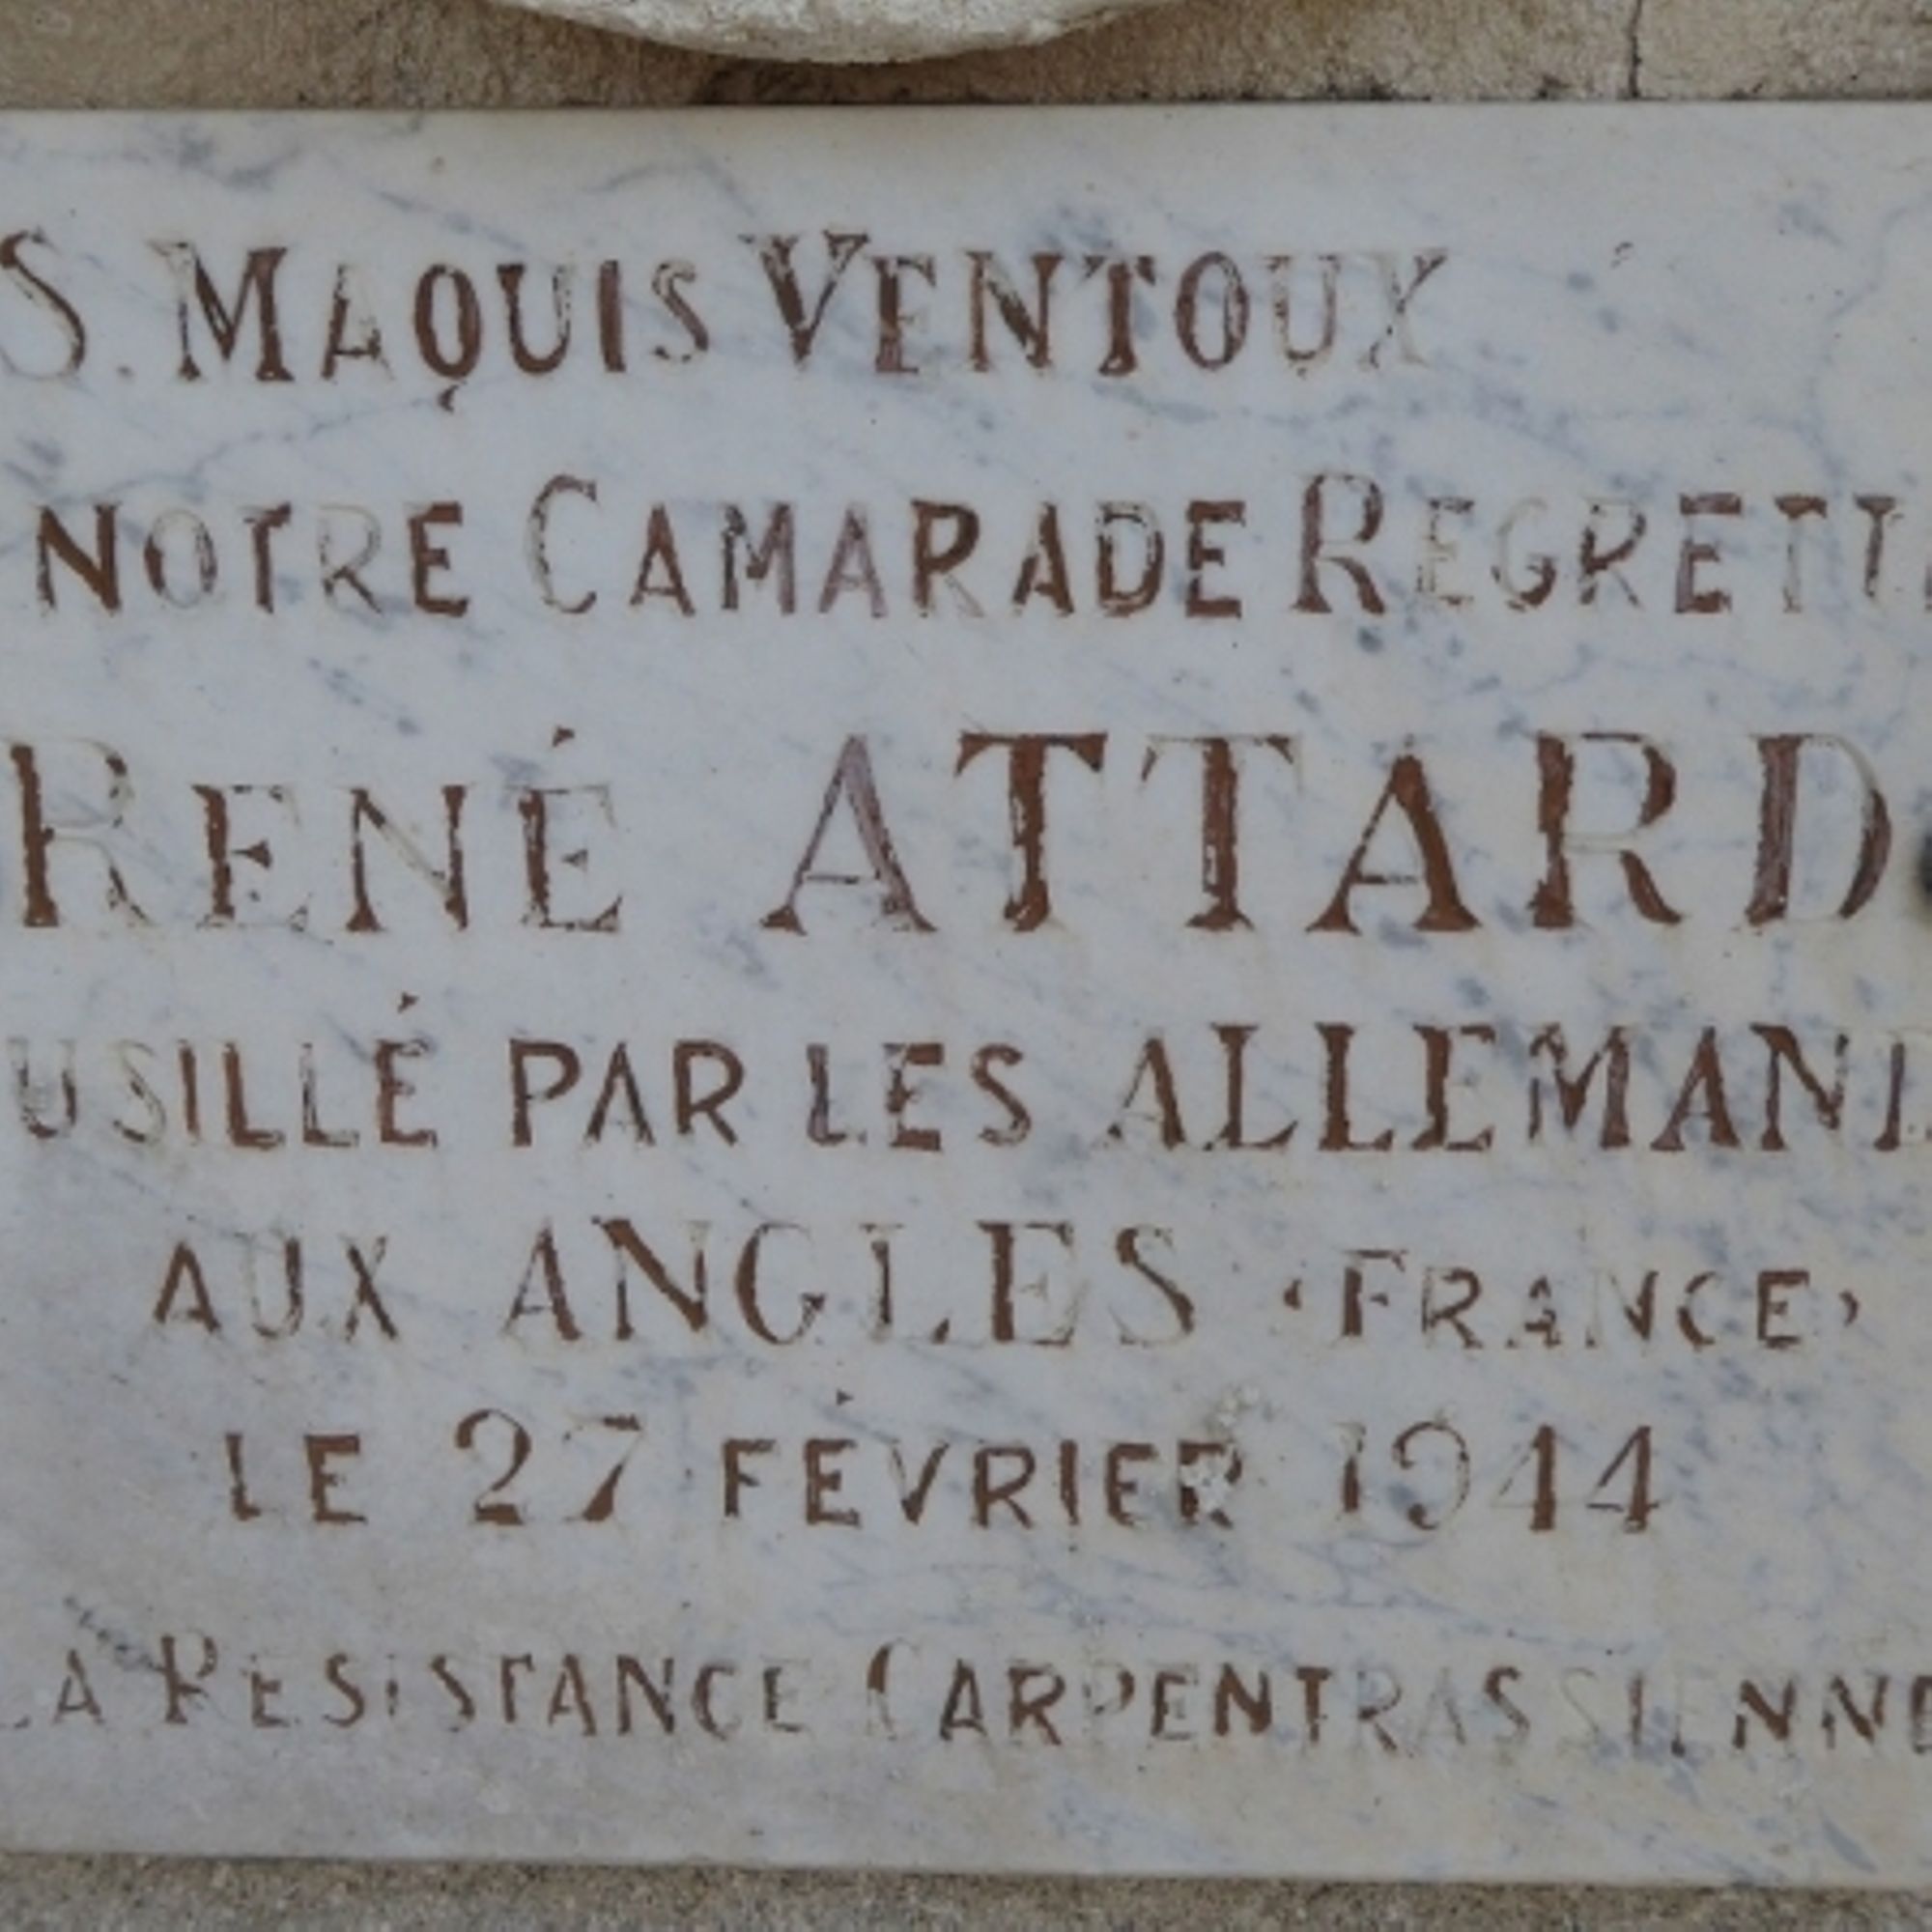 S. MAQUIS VENTOUX
NOTRE CAMARADE REGRETT
RENÉ ATTARD
USILLÉ PAR LES ALLEMAND
AUX ANGLES (FRANCE)
LE 27 FÉVRIER 1944
LA RESISTANCE CARPENTRASSIENNE